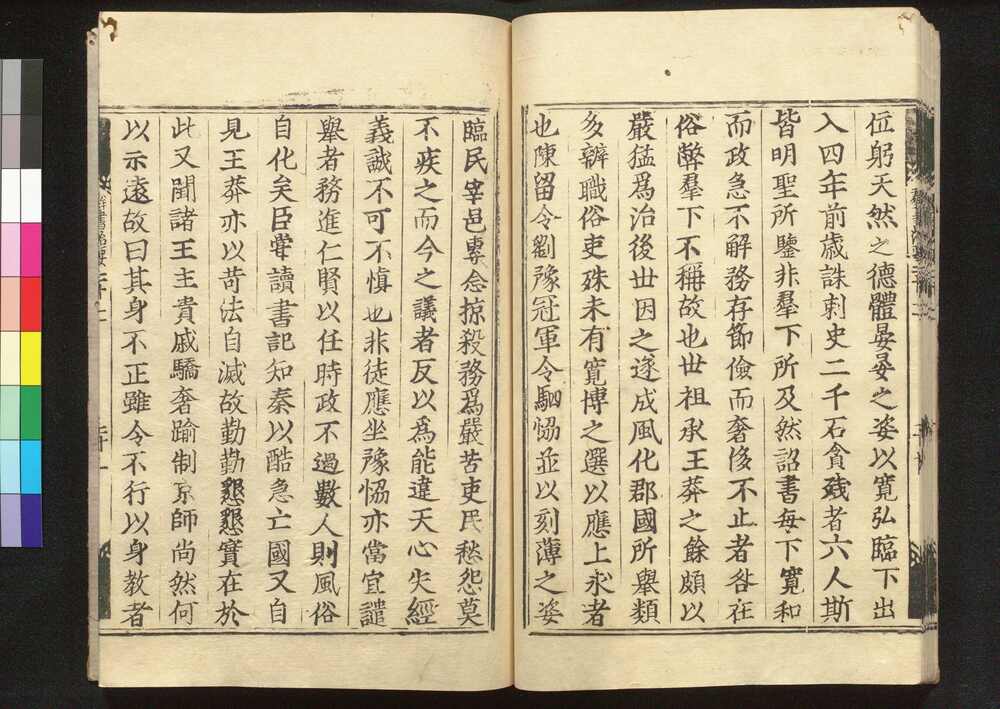 位躬天然之德體晏晏之姿以寬弘臨下出
入四年前歲誅刺史二千石貪殘者六人斯
皆明聖所鑒非羣下所及然詔書每下寬和
而政急不解務存節儉而奢侈不止者咎在
俗弊羣下不稱故也世祖承王莽之餘頗以
嚴猛爲治後世因之遂成風化郡國所舉類
多辦職俗吏殊未有寬博之選以應上求者
也陳留令劉豫冠軍令駟恊並以刻薄之姿
臨民宰邑專念掠殺務爲嚴苦吏民愁怨莫
不疾之而今之議者反以爲能違天心失經
義誠不可不慎也非徒應坐豫恊亦當宜譴
舉者務進仁賢以任時政不過數人則風俗
自化矣臣甞讀書記知秦以酷急亡國又自
見王莽亦以苛法自滅故勤勤懇懇實在於
此又聞諸王主貴戚驕奢踰制京師尚然何
以示遠故曰其身不正雖令不行以身教者